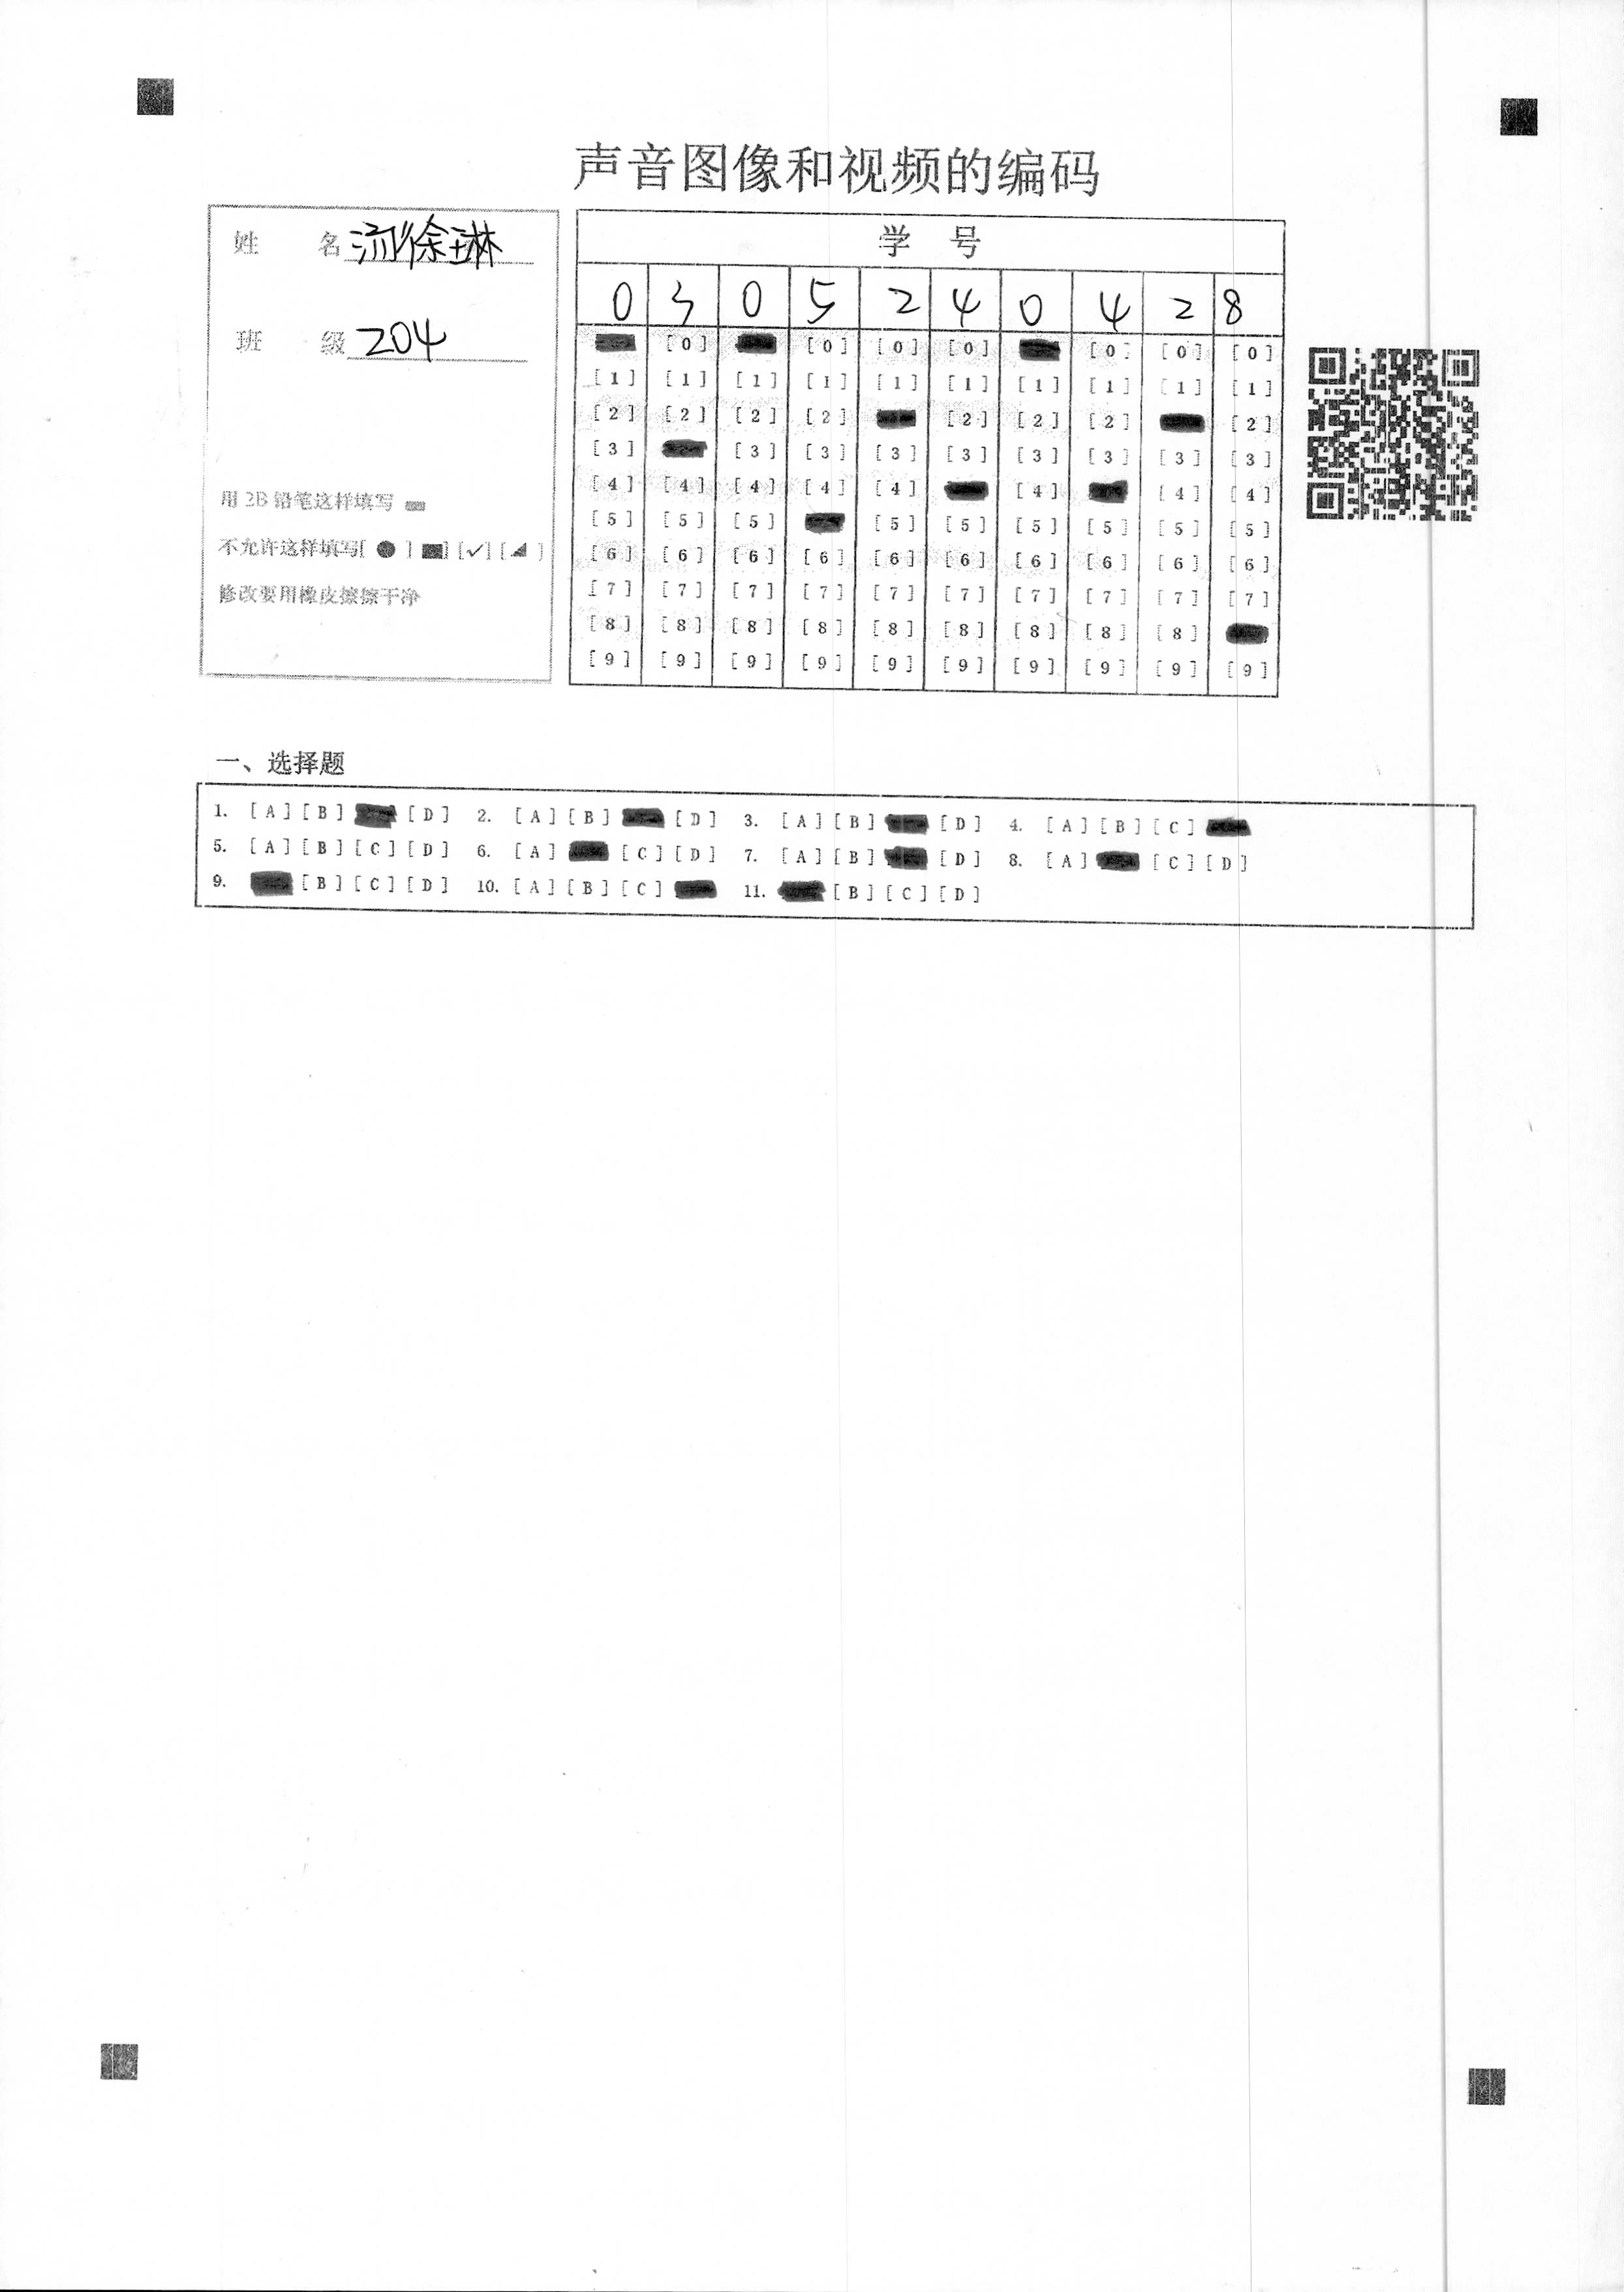 声音图像和视频的编码
姓 名 徐琳
班 级 204
用 2B 铅笔这样填写
不允许这样填写[ ● ] [■] [✓] [◢ ]
修改要用橡皮擦擦干净
学 号
0 3 0 5 2 4 0 4 2 8
[0] [0] [0] [0] [0] [0] [0]
[1] [1] [1] [1] [1] [1] [1] [1] [1] [1]
[2] [2] [2] [2] [2] [2] [2] [2]
[3] [3] [3] [3] [3] [3] [3] [3] [3]
[4] [4] [4] [4] [4] [4] [4] [4]
[5] [5] [5] [5] [5] [5] [5] [5] [5]
[6] [6] [6] [6] [6] [6] [6] [6] [6] [6]
[7] [7] [7] [7] [7] [7] [7] [7] [7] [7]
[8] [8] [8] [8] [8] [8] [8] [8] [8]
[9] [9] [9] [9] [9] [9] [9] [9] [9] [9]
一、选择题
1. [A] [B] [D] 2. [A] [B] [D] 3. [A] [B] [D] 4. [A] [B] [C]
5. [A] [B] [C] [D] 6. [A] [C] [D] 7. [A] [B] [D] 8. [A] [C] [D]
9. [B] [C] [D] 10. [A] [B] [C] 11. [B] [C] [D]